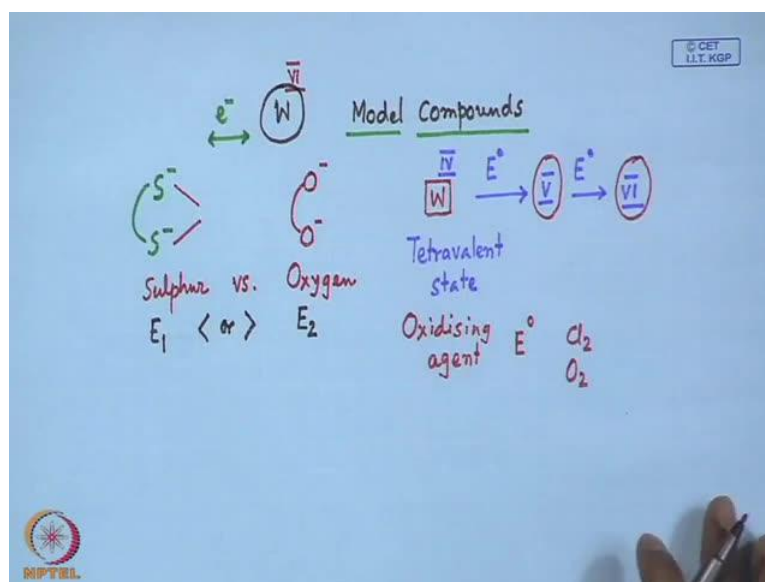 © CET
I.I.T. KGP
VI
e⁻ W Model Compounds
S⁻ O⁻
S⁻ O⁻
IV E° V E° VI
W
Tetravalent
state
Sulphur vs. Oxygen
E₁ < or > E₂
Oxidising
agent E° Cl₂
O₂
NPTEL